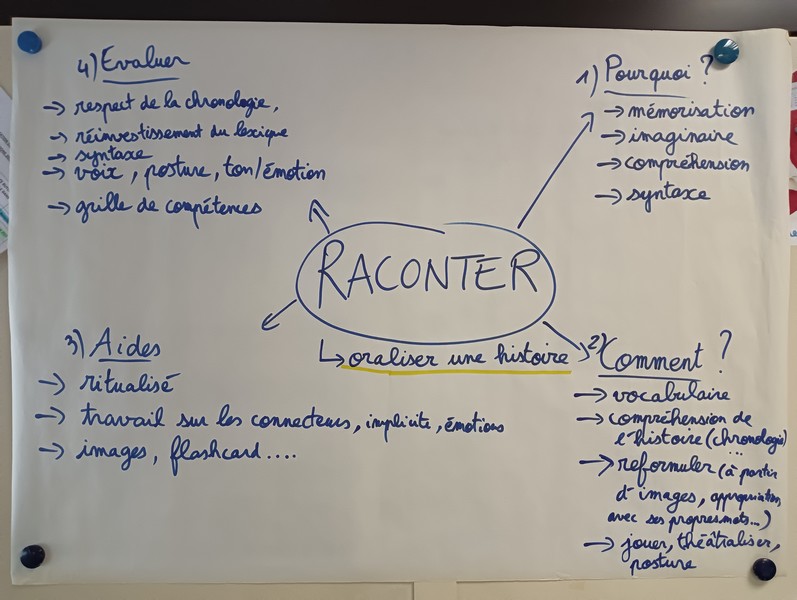 4) Evaluer
→ respect de la chronologie,
→ réinvestissement du lexique
→ syntaxe
→ voix, posture, ton/émotion
→ grille de compétences
1) Pourquoi ?
→ mémorisation
→ imaginaire
→ compréhension
→ syntaxe
RACONTER
↳ oraliser une histoire
3) Aides
→ ritualisé
→ travail sur les connecteurs, implicite, émotions
→ images, flashcard....
2) Comment ?
→ vocabulaire
→ compréhension de
l'histoire (chronologie)
...
→ reformuler (à partir
d'images, appropriation
avec ses propres mots...)
→ jouer, théâtraliser,
posture